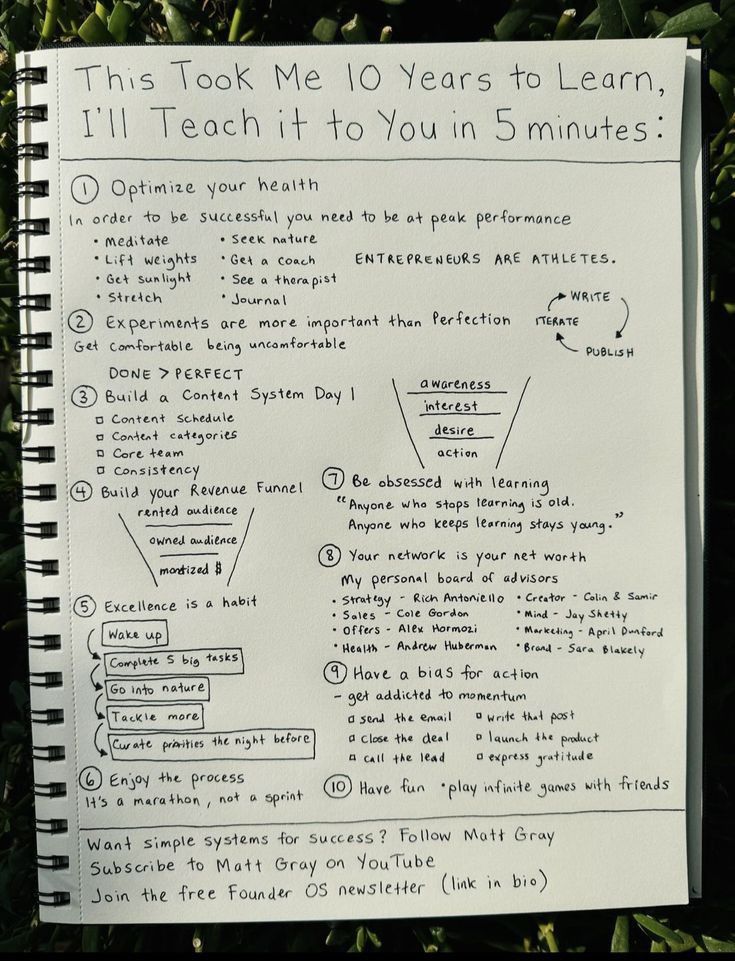 This Took Me 10 Years to Learn,
I'll Teach it to You in 5 minutes:
① Optimize your health
In order to be successful you need to be at peak performance
• Meditate
• Lift weights
• Get sunlight
• Stretch
• Seek nature
• Get a coach
• See a therapist
• Journal
ENTREPRENEURS ARE ATHLETES.
② Experiments are more important than Perfection
Get comfortable being uncomfortable
DONE > PERFECT
WRITE
PUBLISH
ITERATE
③ Build a Content System Day 1
□ Content schedule
□ Content categories
□ Core team
□ Consistency
awareness
interest
desire
action
④ Build your Revenue Funnel
rented audience
owned audience
monetized $
⑤ Excellence is a habit
Wake up
Complete 5 big tasks
Go into nature
Tackle more
Curate priorities the night before
⑥ Enjoy the process
It's a marathon, not a sprint
⑦ Be obsessed with learning
"Anyone who stops learning is old.
Anyone who keeps learning stays young."
⑧ Your network is your net worth
My personal board of advisors
• Strategy - Rich Antoniello
• Sales - Cole Gordon
• Offers - Alex Hormozi
• Health - Andrew Huberman
• Creator - Colin & Samir
• Mind - Jay Shetty
• Marketing - April Dunford
• Brand - Sara Blakely
⑨ Have a bias for action
- get addicted to momentum
□ send the email
□ close the deal
□ call the lead
□ write that post
□ launch the product
□ express gratitude
⑩ Have fun • play infinite games with friends
Want simple systems for success? Follow Matt Gray
Subscribe to Matt Gray on YouTube
Join the free Founder OS newsletter (link in bio)